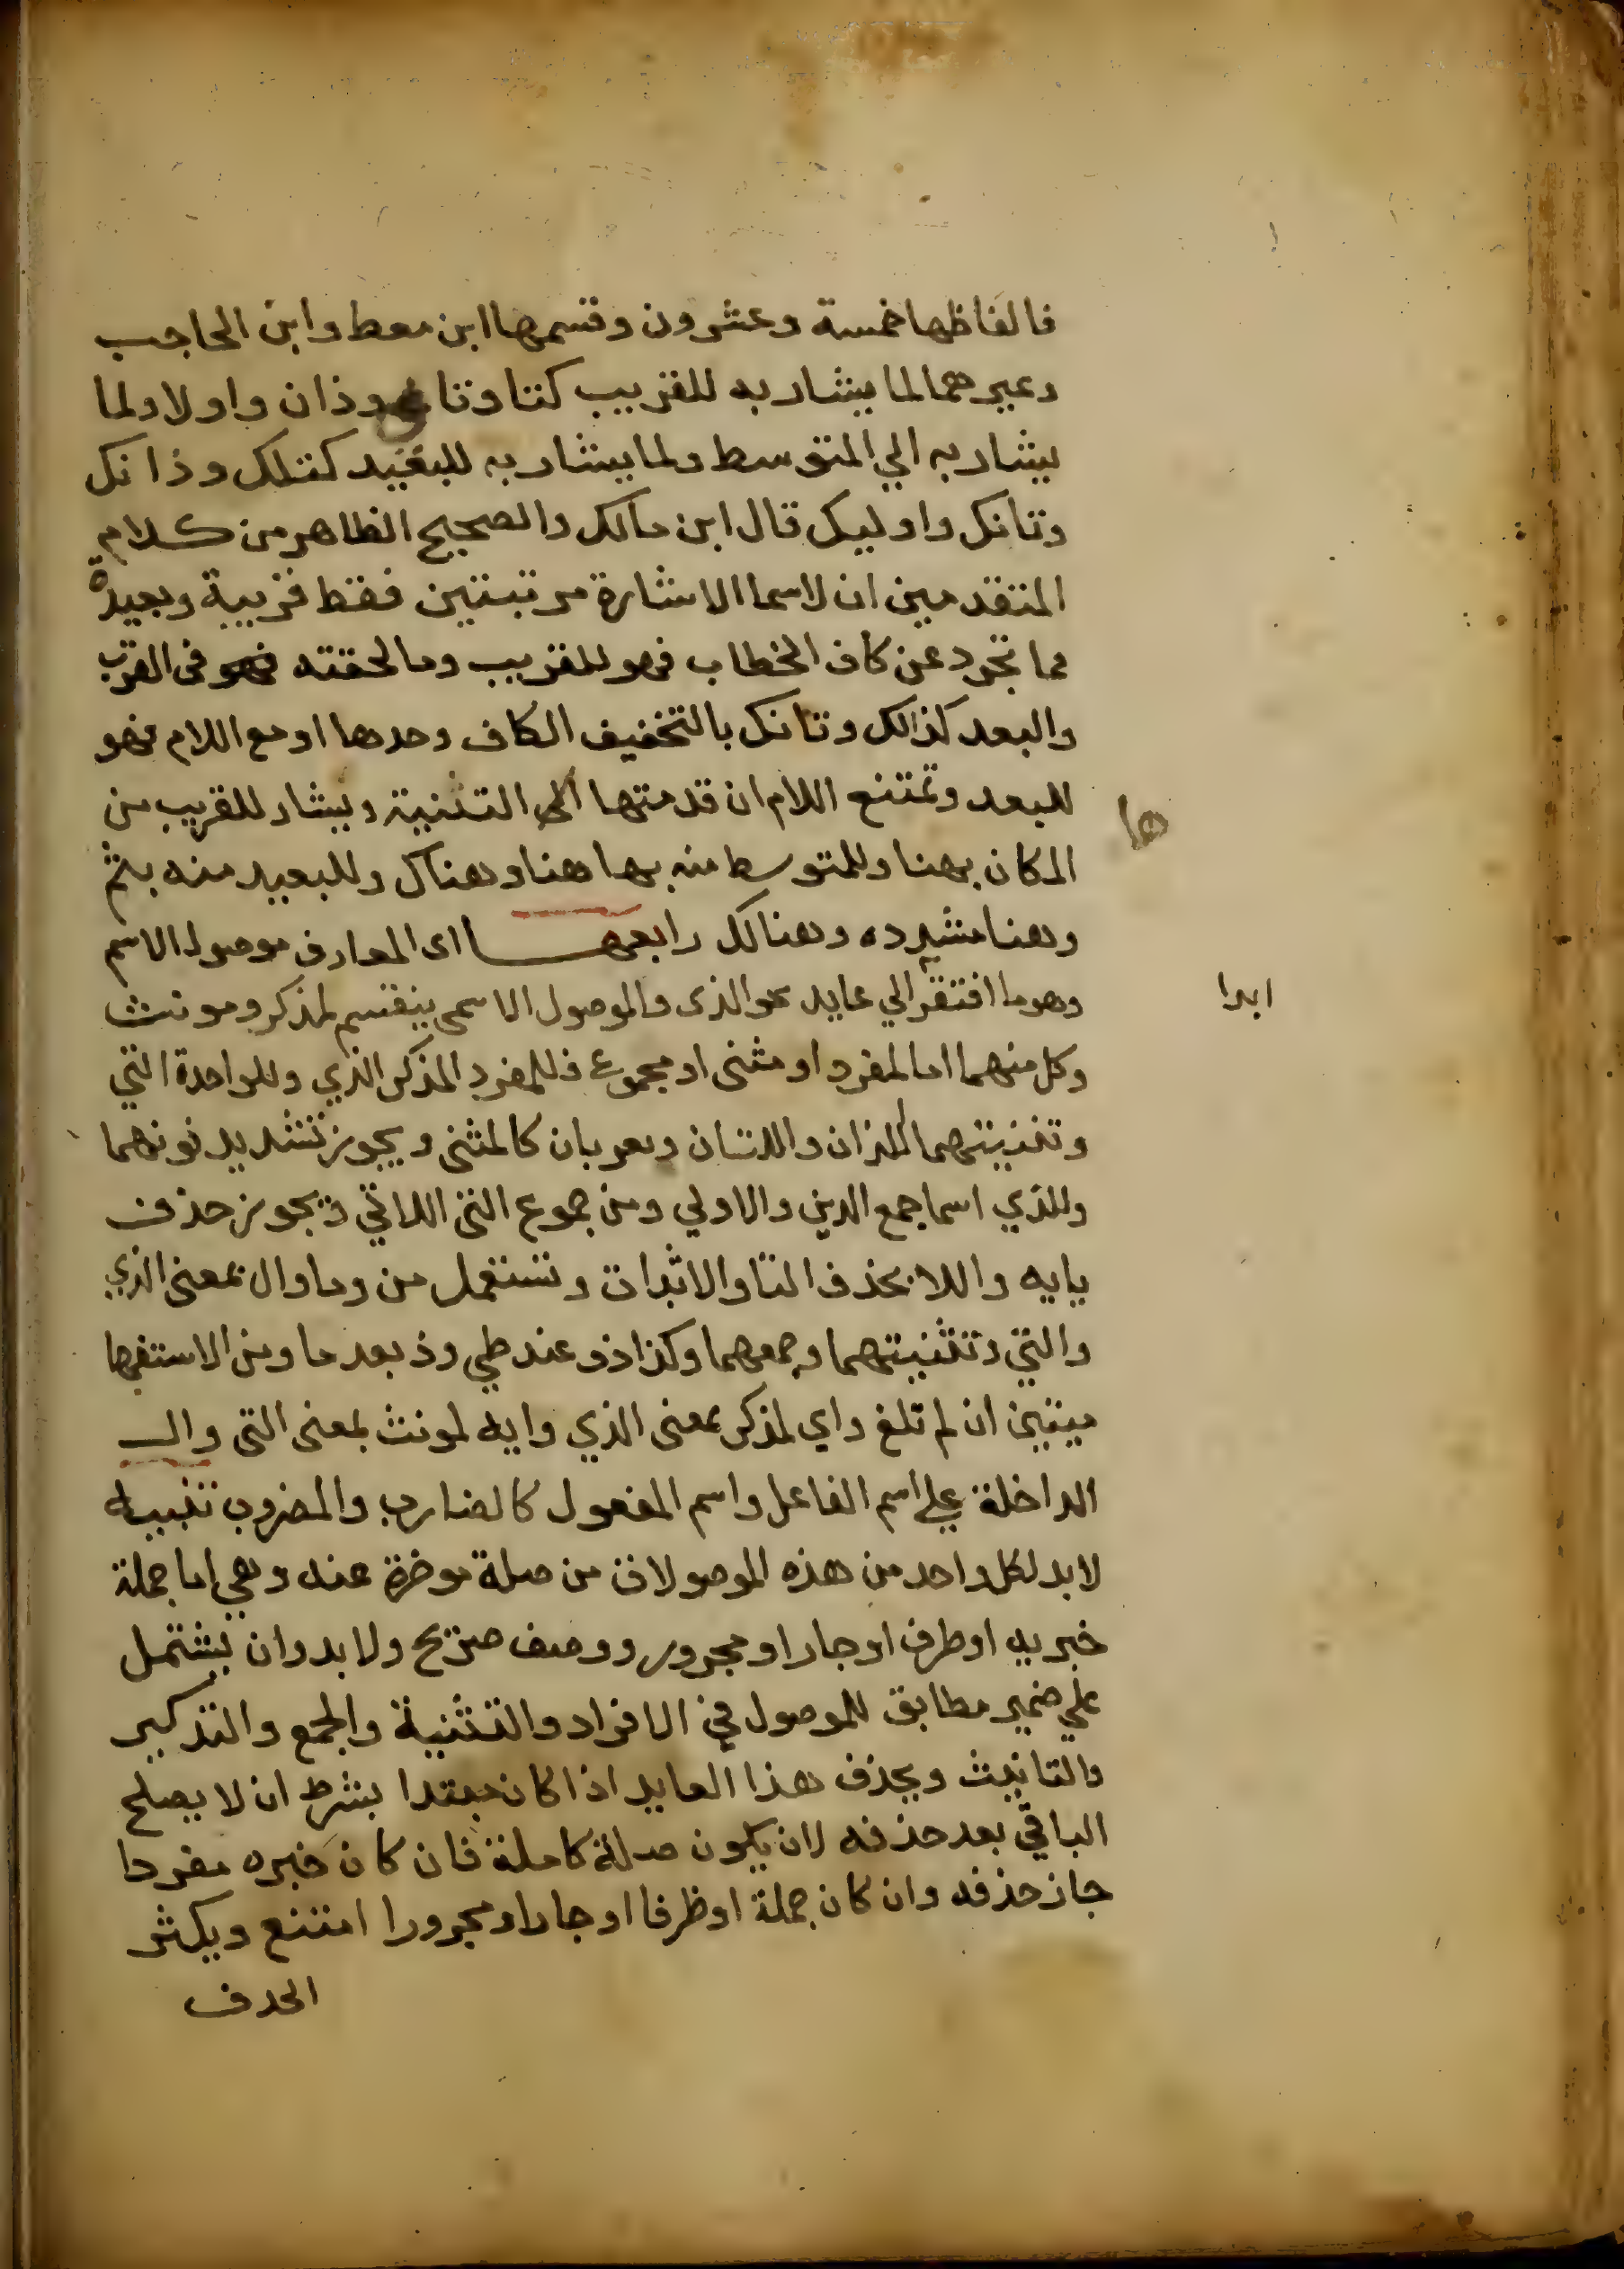 فالفاظها خمسة وعشرون وقسمها ابن معط وابن الحاجب
وغيرهما لما يشار به للقريب كتا وتا وذان واولا ولما
يشار به الي المتوسط ولما يشار به للبعيد كتلك وذانك
وتانك واوليك قال ابن مالك والصحيح الظاهر من كلام
المتقدمين ان لاسما الاشارة مرتبتين فقط قريبة وبعيدة
فما تجرد عن كاف الخطاب فهو للقريب وما لحقته فهو في القرب
والبعد كذالك وتانك بالتخفيف الكاف وحدها او مع اللام فهو
للبعد وتمتنع اللام ان قدمتها الي التثنية ويشار للقريب من
ها
المكان بهنا وللمتوسط منه بها هنا وهناك وللبعيد منه بثم
وهنا مشدده وهنالك رابعها اى المعارف موصول الاسم
وهو ما افتقر الي عايد نحو الذى والموصول الاسمى ينقسم لمذكر ومونث
ابدا
وكل منهما اما لمفرد او مثنى او مجموع فللمفرد المذكر الذي وللواحدة التي
وتثنيتهما اللذان واللتان ويعربان كالمثنى ويجوز تشديد نونهما
وللذي اسما جمع الذين والاولي ومن جموع التى اللاتي ويجوز حذف
يايه واللا بحذف التا والاثبات وتستعمل من وما وال بمعنى الذي
والتي وتثنيتهما وجمعهما وكذا ذو عند طي وذ بعد ما ومن الاستفها
ميتين ان لم تلغ واي لمذكر بمعنى الذي وايه لمونث بمعنى التى وال
الداخلة على اسم الفاعل واسم المفعول كالضارب والمضروب تنبيه
لابد لكل واحد من هذه الموصولات من صلة موخرة عنه وهي اما جملة
خبريه او ظرف او جار او مجرور ووصف صريح ولا بد وان يشتمل
علي ضمير مطابق للموصول في الافراد والتثنية والجمع والتذكير
والتانيث ويحذف هذا العايد اذا كان مبتدا بشرط ان لا يصلح
الباقي بعد حذفه لان يكون صلة كاملة فان كان خبره مفردا
جاز حذفه وان كان جملة او ظرفا او جارا ومجرورا امتنع ويكثر
الحدف